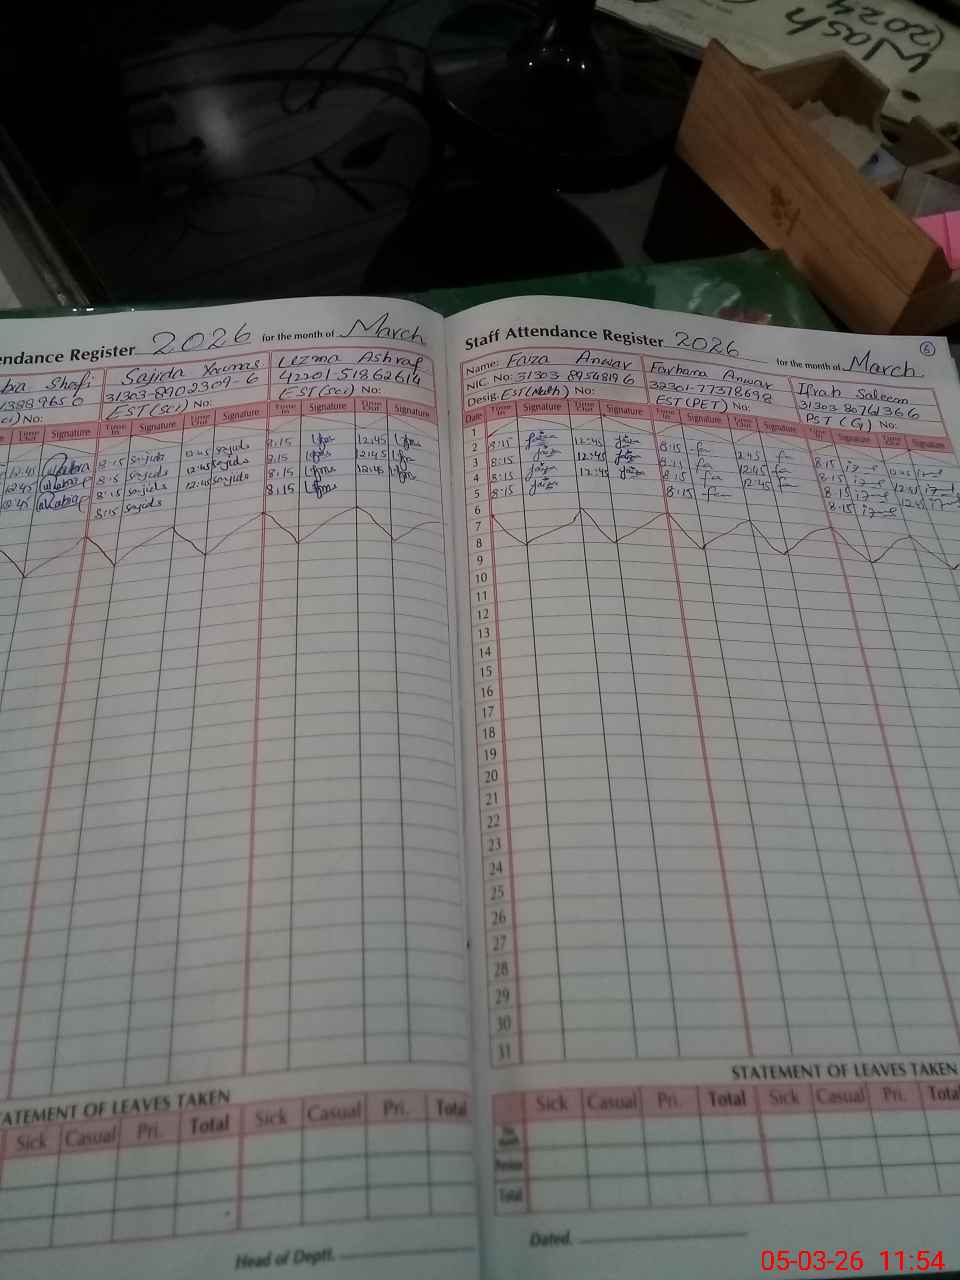 Wash
(2024
endance Register 2026 for the month of March
ba Shafi
Sajida
Uzma Ashraf
13889650
31303-8902309-6
42201-51862614
ci) No:
EST (sci) No:
EST (sci) No:
Time Out Signature Time In Signature Time Out Signature Time In Signature Time Out Signature
12:45 8:15 Sajida 12:45 Sajida 8:15 12:45
12:45 8:15 Sajida 12:45 Sajida 8:15 12:45
12:45 8:15 Sajida 12:45 Sajida 8:15 12:45
8:15 Sajida 8:15
STATEMENT OF LEAVES TAKEN
Sick Casual Pri. Total Sick Casual Pri. Total
Head of Deptt.
Staff Attendance Register 2026 for the month of March
6
Name: Faiza Anwar
Farhana Anwar
Ifrah Saleem
NIC No: 31303 89548196
32301-77378698
31303 80761366
Desig. EST (Math) No:
EST (PET) No:
PST (G) No:
Date Time In Signature Time Out Signature Time In Signature Time Out Signature Time In Signature Time Out Signature
1
2 8:15 12:45 8:15 12:45 8:15 12:45
3 8:15 12:45 8:15 12:45 8:15 12:45
4 8:15 12:45 8:15 12:45 8:15 12:45
5 8:15 8:15 8:15
6
7
8
9
10
11
12
13
14
15
16
17
18
19
20
21
22
23
24
25
26
27
28
29
30
31
STATEMENT OF LEAVES TAKEN
Sick Casual Pri. Total Sick Casual Pri. Total
Total
Dated.
05-03-26 11:54